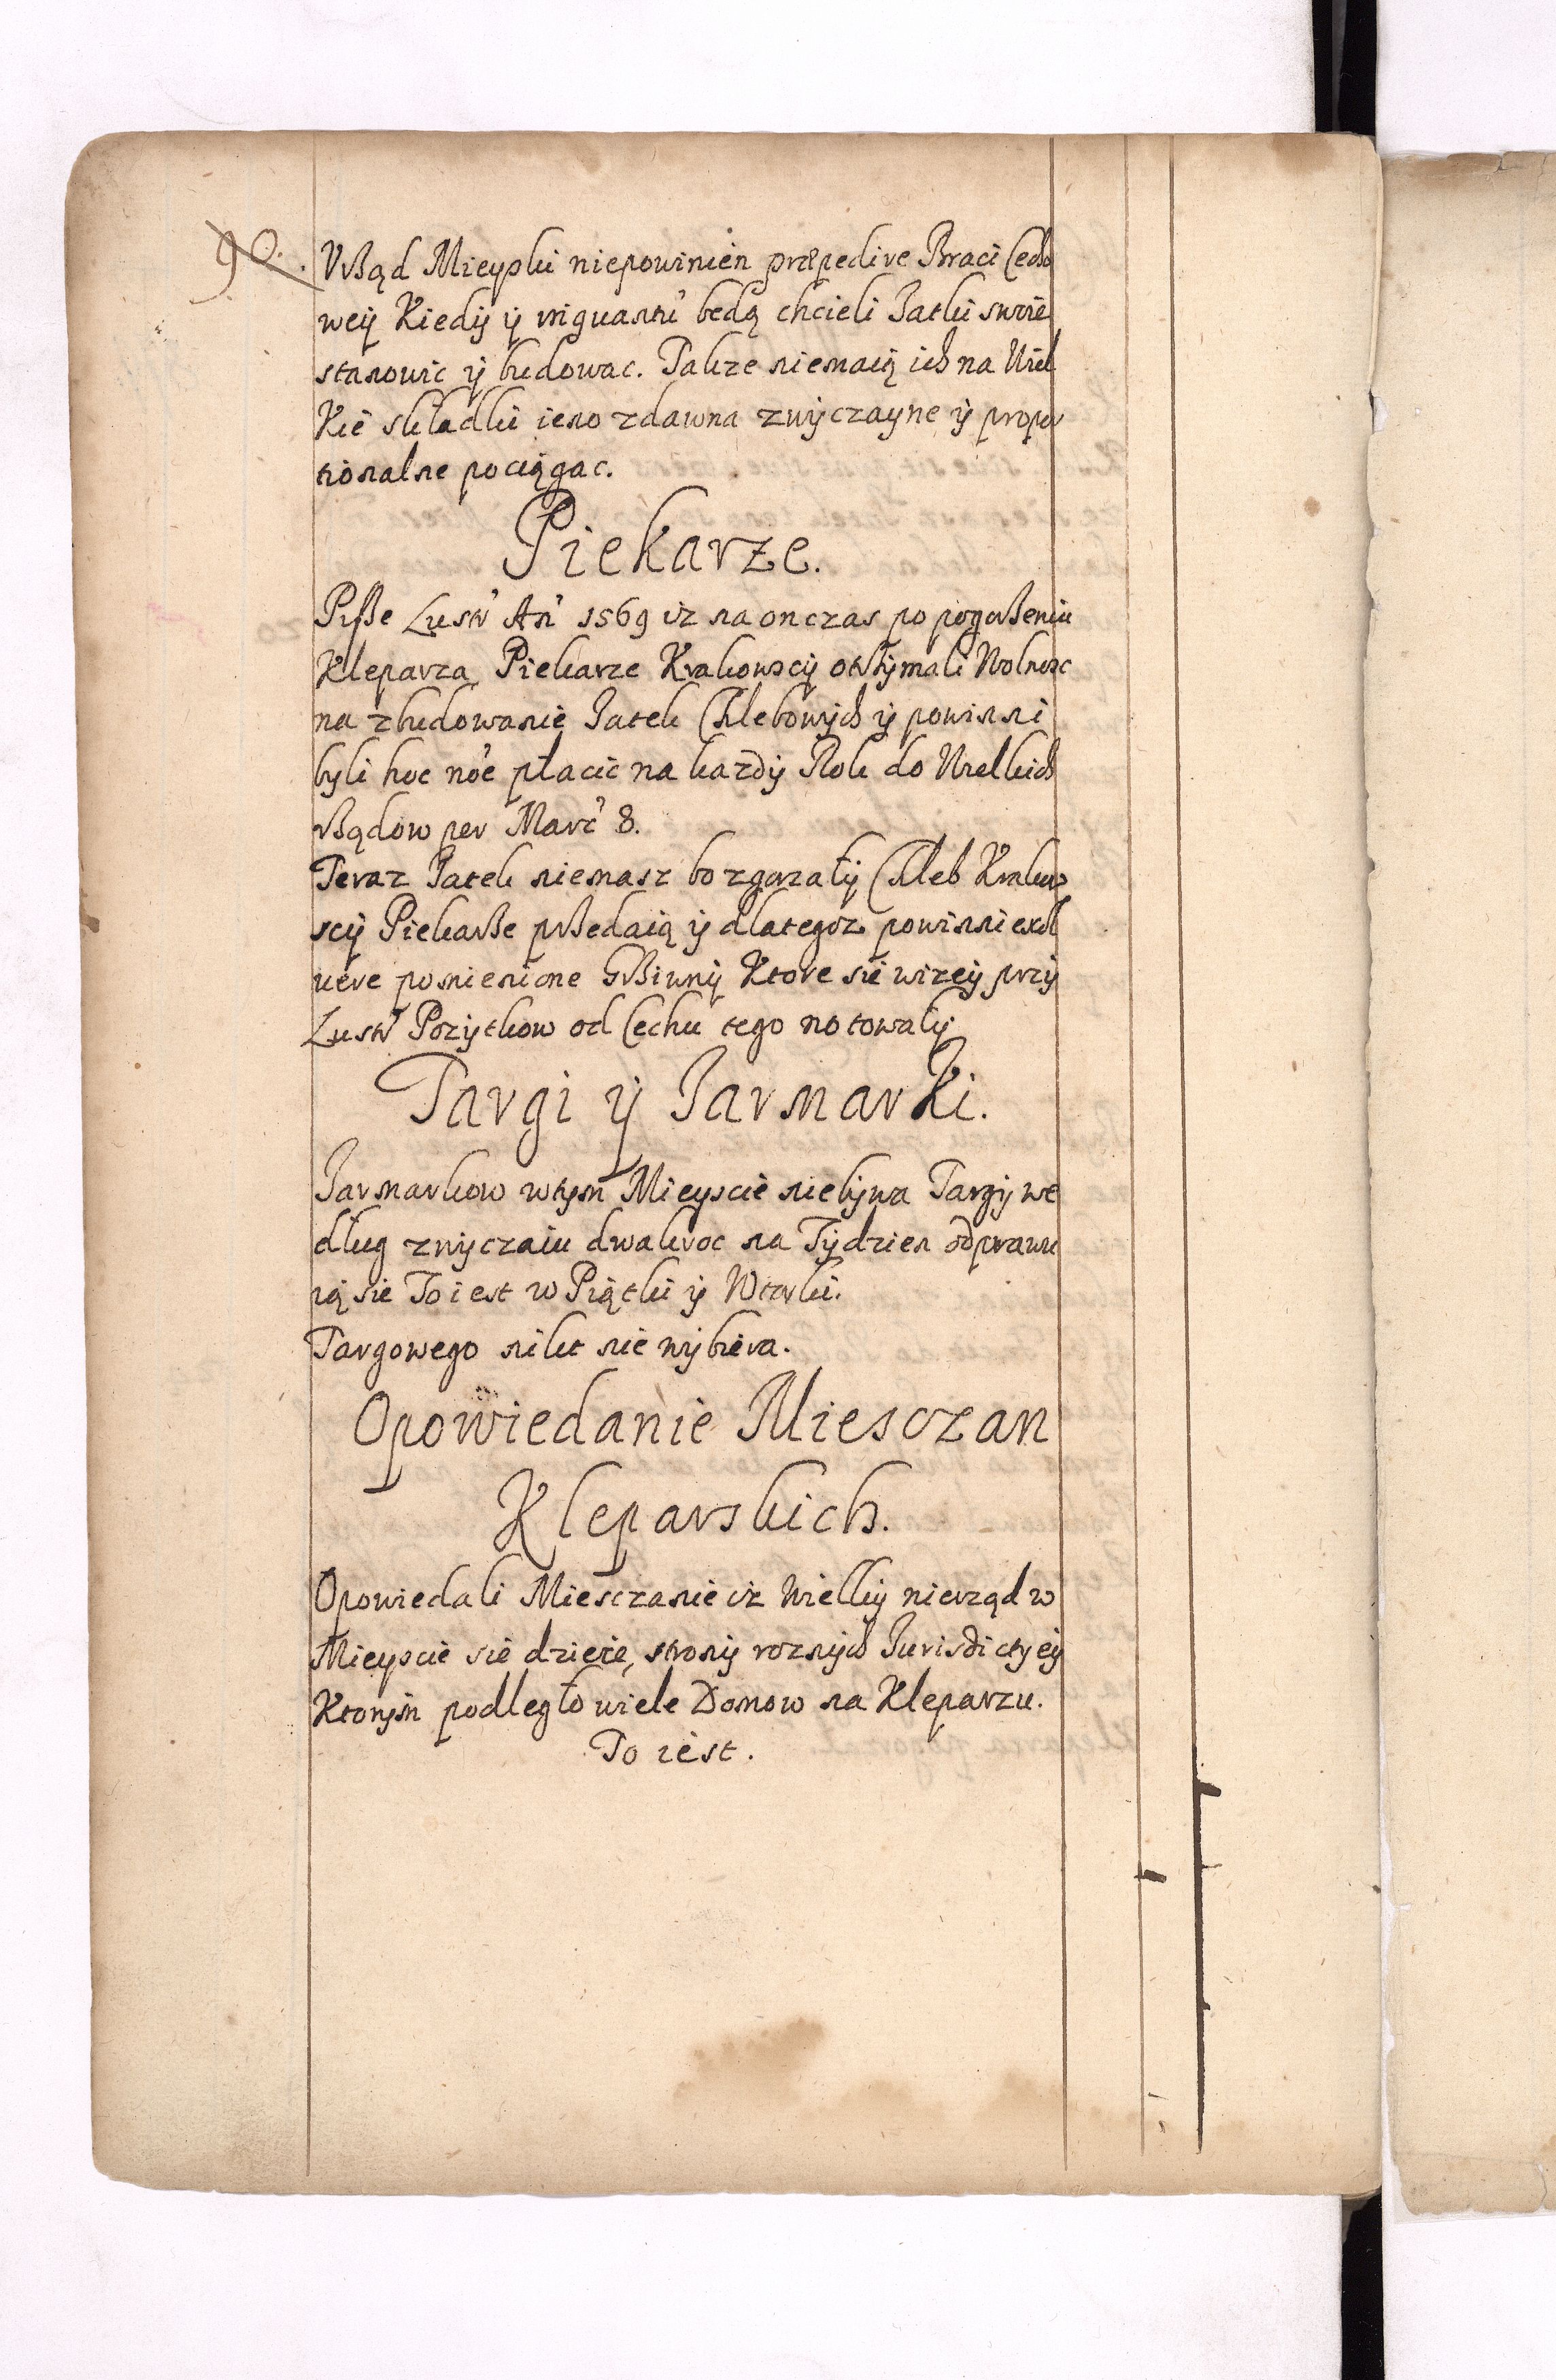 90.
Vrząd Mieyski niepowinien præpedire Braci Cecho
wey Kiedy y miguastu będą chcieli Jatki swoie
stanowic y budowac. Takze niemaią ich na Wiel
Kie składki ieno zdawna zwyczayne y propor
tionalne pociągac.
Piekarze.
Pisze Lustr' An' 1569 iz na on czas po pogorzeniu
Kleparza Piekarze Krakowscy otrzymali Wolnosc
na zbudowanie Jatek Chlebowych y powinni
byli hoc no'e płacic na kazdy Rok do Wielkich
rządow per Marc' 8.
Teraz Jatek niemasz bo zgorzały Chleb Krakow
scy Piekarze przedaią y dlategoz powinni exol
uere pomienione Grziwny Ktore sie wizey przy
Lustr' Pozytkow od Cechu tego notowały
Targi y Jarmarki.
Jarmarkow wtym Mieyscie niebywa Targy we
dług zwyczaiu dwakroc na Tydzien odprawu
ią sie To iest w Piątki y Wtorki.
Targowego nikt nie wybiera.
Opowiedanie Miesczan
Kleparskich.
Opowiedali Miesczanie iz Wielky nierząd w
Mieyscie sie dzieie, strony roznych Jurisdictyey
Ktorym podległo wiele Domow na Kleparzu.
To iest.